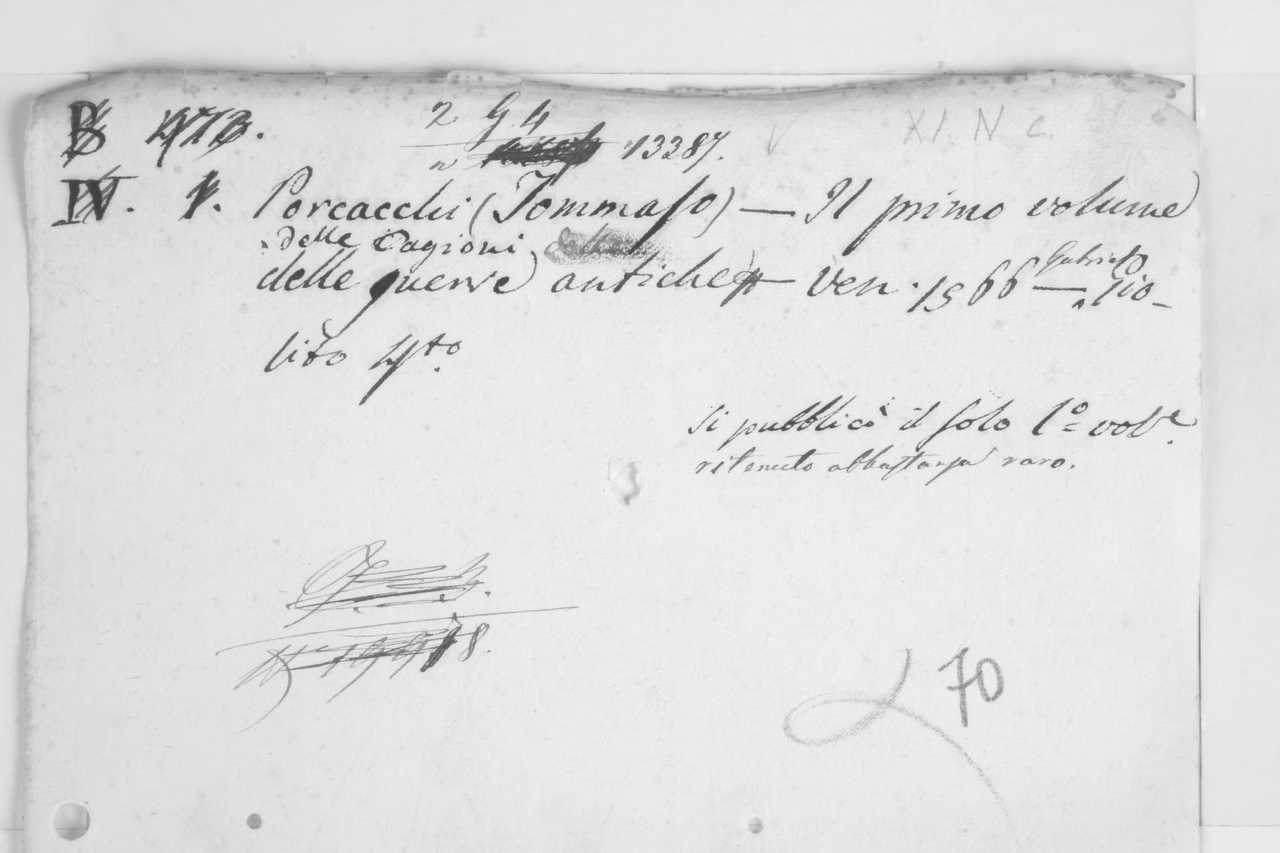 2 G 4
XI. N c.
n 13387.
IV. 1. Porcacchi (Tommaso) — Il primo volume
delle Cagioni
delle guerre antiche — Ven. 1566 — Gabriel Gio-
lito 4to.
Si pubblicò il solo 1º vole.
ritenuto abbastanza raro.
70